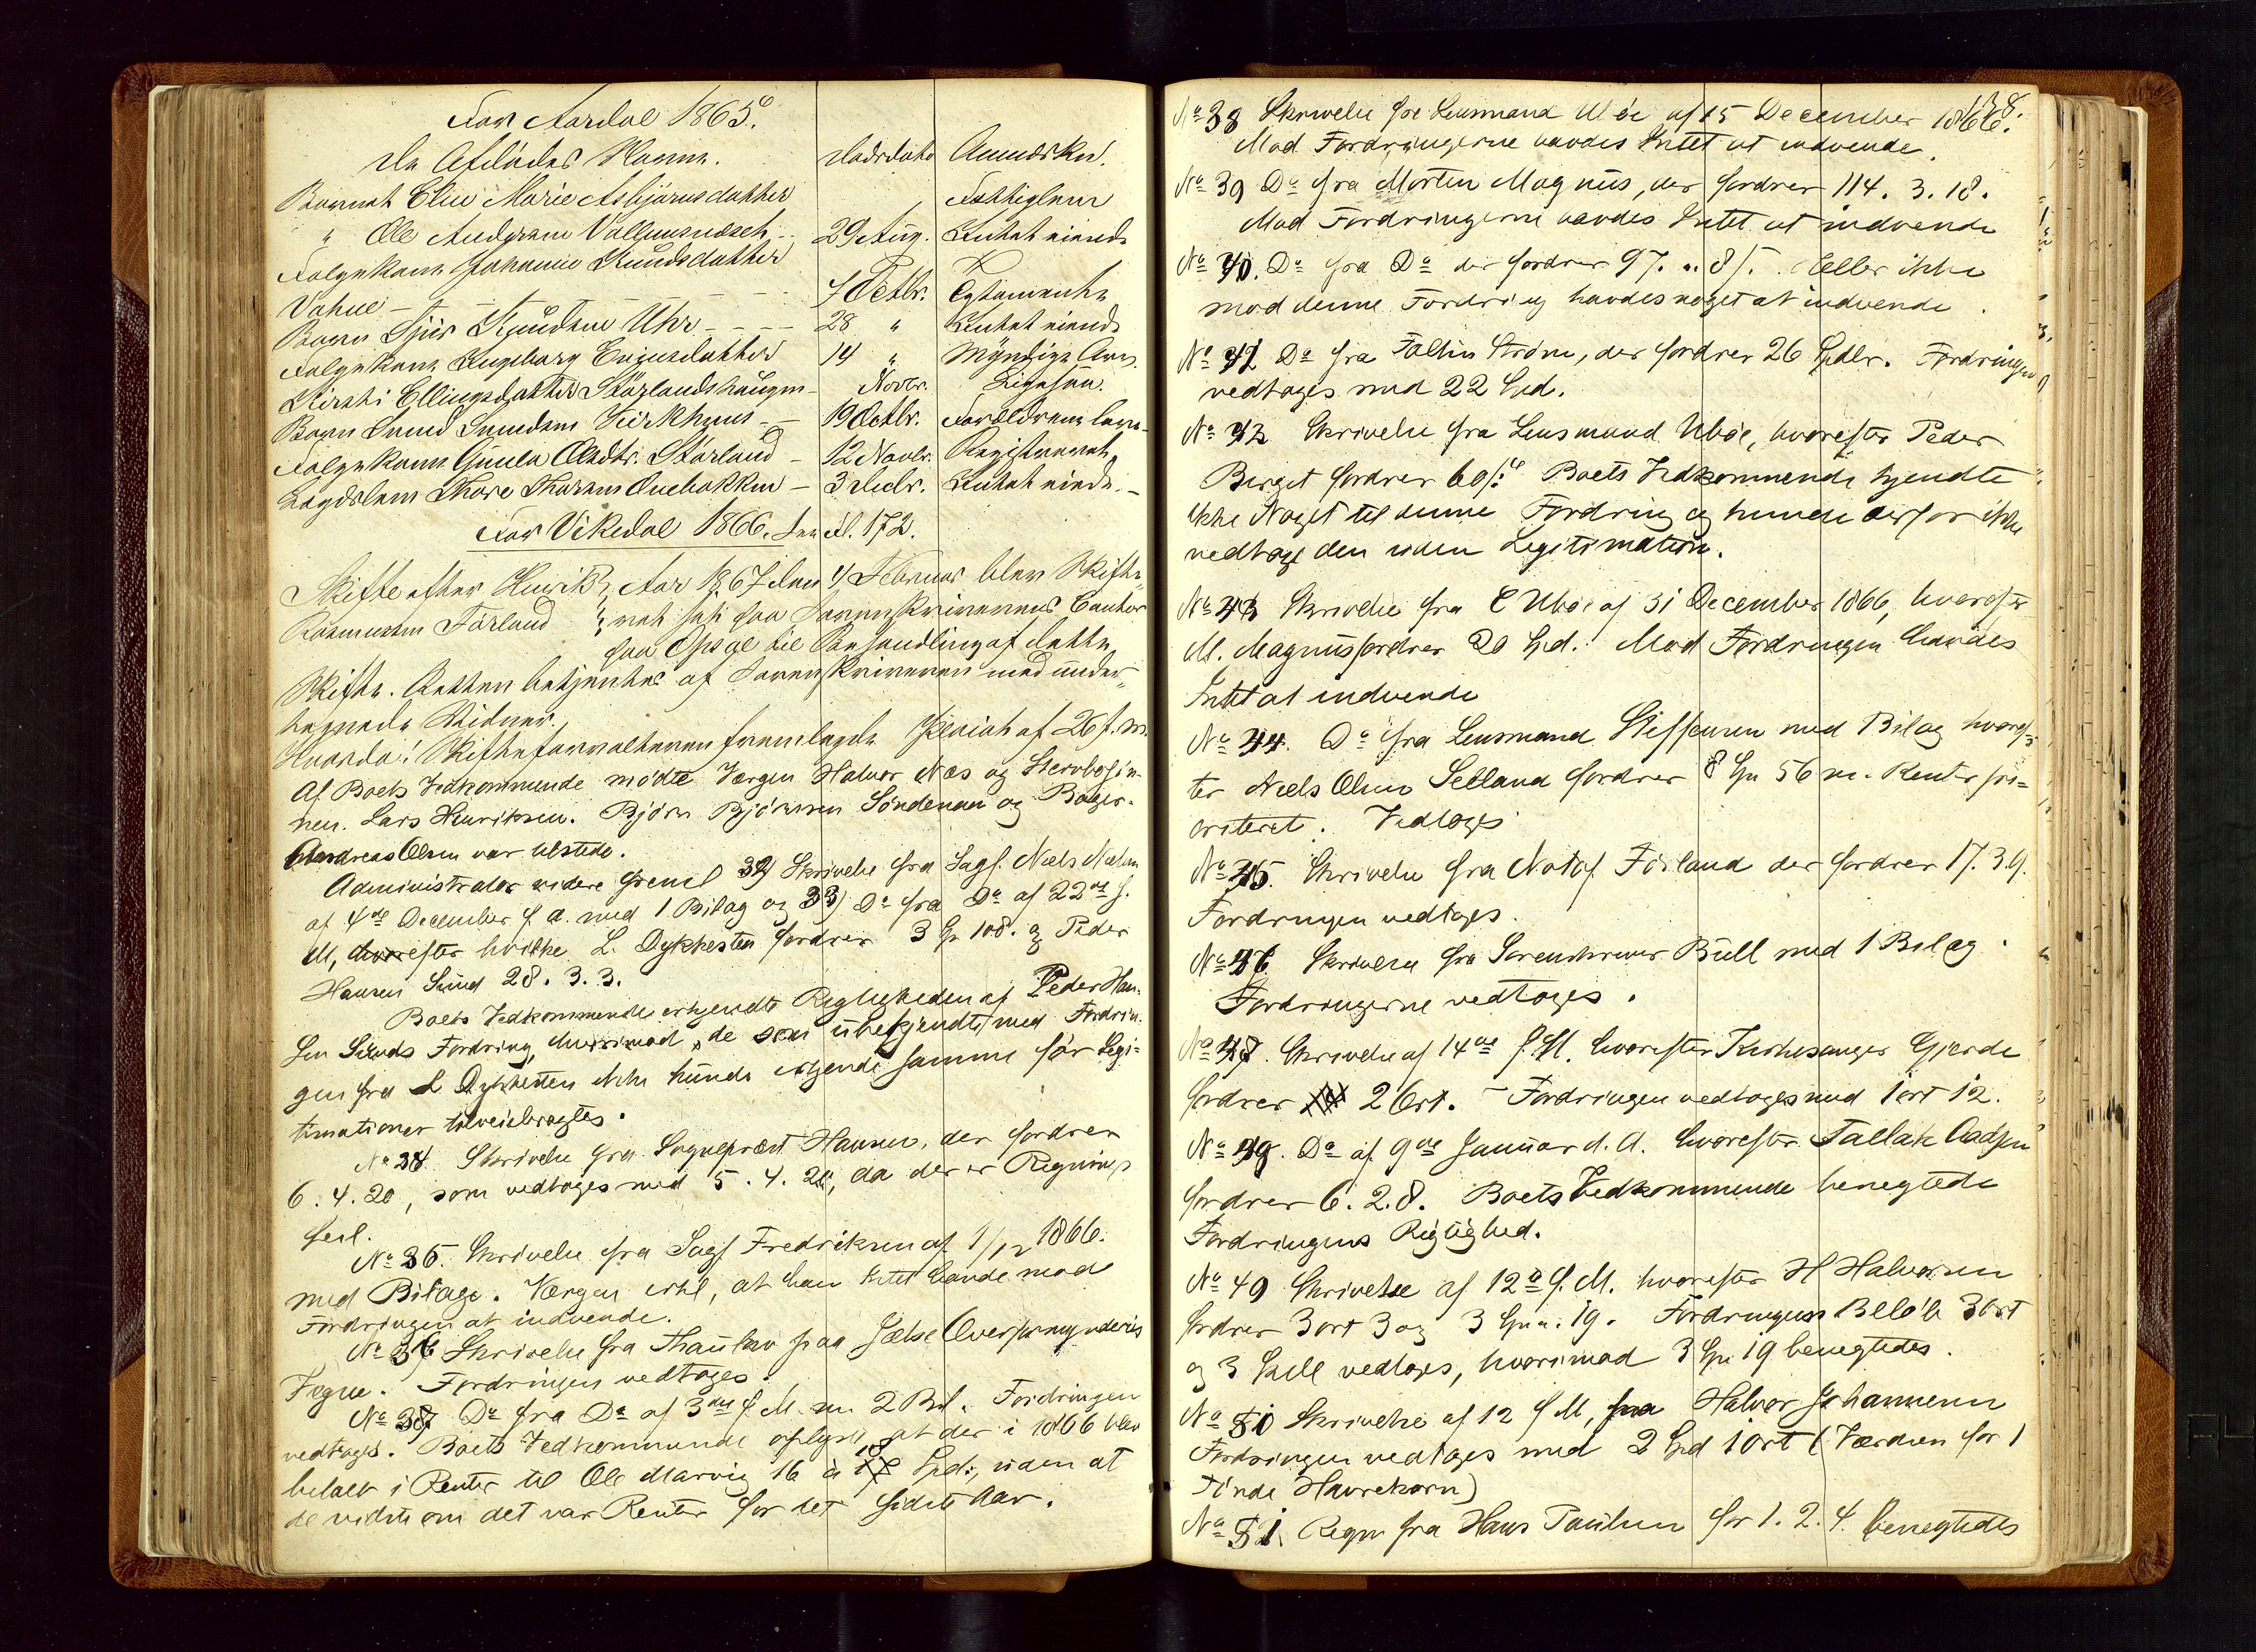 For Aardal 1865.
De Afdødes Navne. Dødsdato Anmærkn.
Barnet Eline Marie Asbjørnsdatter Fattiglem
" Ole Andreas 29 Aug. Intet eiende
Folgekone Johanne Knudsdatter
Vatne 7 Octbr. Testamente
Barn Knudsen Uhr 28 " Intet eiende
Folgekone Ingeborg 14 " Myndige Arv.
Kirsti Ellingsdatter Størlandshaugen Novbr. Ligesaa.
Barn Svend Svendsen Kirkhuus 19 Octbr. Forældrene leve
Folgekone Gunla Olsdtr. Størland 12 Novbr. Registreret
Lægdslem Thore 3 Decbr. Intet eiende.
For Vikedal 1866. See Fol. 172.
Skifte efter Henrik Aar 1867 den 4 Februar blev Skifte
Rasmussen Førland ret sat paa Sorenskriverens Contor
paa Opsal til Behandling af dette
Skifte. Retten betjentes af Sorenskriveren med under
tegnede Vidner.
Hvorda! Skifteforvalteren fremlagde Placat af 26 f. M.
Af Boets Vedkommende mødte Værgen Halvor Næs og Stervbosøn
nen. Lars Henriksen. Bjørn Bjørnsen Søndenaa og
Andreas Olsen var tilstede.
Administrator videre freml 32) Skrivelse fra Sagf. Niels Nielsen
af 4de December f. A. med 1 Bilag og 33) Do fra Do af 22de f.
M, efter hvilke L. Dykkesten fordrer 3 Sp 108. og Peder
Hansen Sund 28. 3. 3.
Boets Vedkommende erkjendte Rigtigheden af Peder Han-
sen Sunds Fordring, hvorimod de som ubekjendte med Fordrin-
gen fra L Dykkesten ikke kunde erkjende samme før Legi-
timationer tilveiebragtes.
No 34 Skrivelse fra Sognepræst Hansen, der fordrer
6. 4. 20, som vedtoges med 5. 4. 20, da der er Regnings
feil.
No 35. Skrivelse fra Sagf Fredriksen af 1/12 1866.
med Bilage. Værgen erkl, at han Intet havde mod
Fordringen at indvende.
No 36 Skrivelse fra Thaulow paa Jælse Overformynderis
Vegne. Fordringen vedtoges.
No 37 Do fra Do af 3die f. M. m 2 Bil. Fordringen
vedtoges. Boets Vedkommende oplyste at der i 1866 blev
betalt i Renter til Ole Marvig 16 à 18 Spd:, uden at
de vidste om det var Renter for det sidste Aar.
138.
No 38 Skrivelse fra Lensmand Ubøe af 15 December 1866.
Mod Fordringerne havdes Intet at indvende.
No 39 Do fra Morten Magnus, der fordrer 114. 3. 18.
Mod Fordringerne havdes Intet at indvende
No 40. Do fra Do der fordrer 97. " 8 /. Heller ikke
mod denne Fordring havdes noget at indvende.
No 41 Do fra Faltin Strøm, der fordrer 26 Spdlr. Fordringen
vedtoges med 22 Spd.
No 42 Skrivelse fra Lensmand Ubøe, hvorefter Peder
Berget fordrer 60 /: Boets Vedkommende kjendte
ikke Noget til denne Fordring og kunde derfor ikke
vedtage den uden Legitimation.
No 43 Skrivelse fra E Ubøe af 31 December 1866, hvorefter
M. Magnus fordrer 20 Spd. Mod Fordringen havdes
Intet at indvende
No 44. Do fra Lensmand Steffensen med Bilag hvoref-
ter Niels Olsen Selland fordrer 8 Sp 56 m. Renter pri-
oriteret. Vedtoges
No 45. Skrivelse fra Notof. Førland der fordrer 17. 3. 9.
Fordringen vedtoges.
No 46. Skrivelse fra Sorenskriver Bull med 1 Bilag.
Fordringerne vedtoges.
No 47. Skrivelse af 14de f. M. hvorefter Kirkesanger Gjerde
fordrer 2 Ort. - Fordringen vedtoges med 1 ort 12.
No 48. Do af 9de Januar d. A. hvorefter Tallak Aadsen
fordrer 6. 2. 8. Boets Vedkommende benegtede
Fordringens Rigtighed.
No 49 Skrivelse af 12te f. M. hvorefter H Halvorsen
fordrer 3 ort 3 og 3 Sp " 19. Fordringens Beløb 3 Ort
og 3 Skill vedtoges, hvorimod 3 Sp 19 benegtedes.
No 50 Skrivelse af 12 f M, fra Halvor Johannesen
Fordringen vedtoges med 2 Spd 1 Ort (Værdien for 1
Tønde Havrekorn)
No 51 Regn fra Hans Paulsen for 1. 2. 4. benegtedes